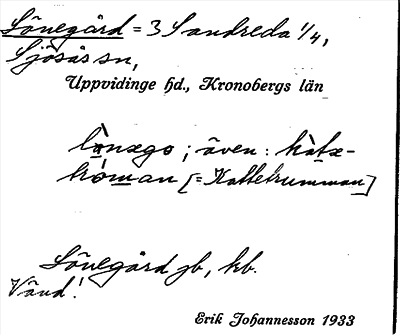 Lönegård = 3 Sandreda 1/4,
Sjösås sn,
Uppvidinge hd., Kronobergs län
; även:
[= Kattetrumman]
Lönegård jb, kb.
Vänd!
Erik Johannesson 1933